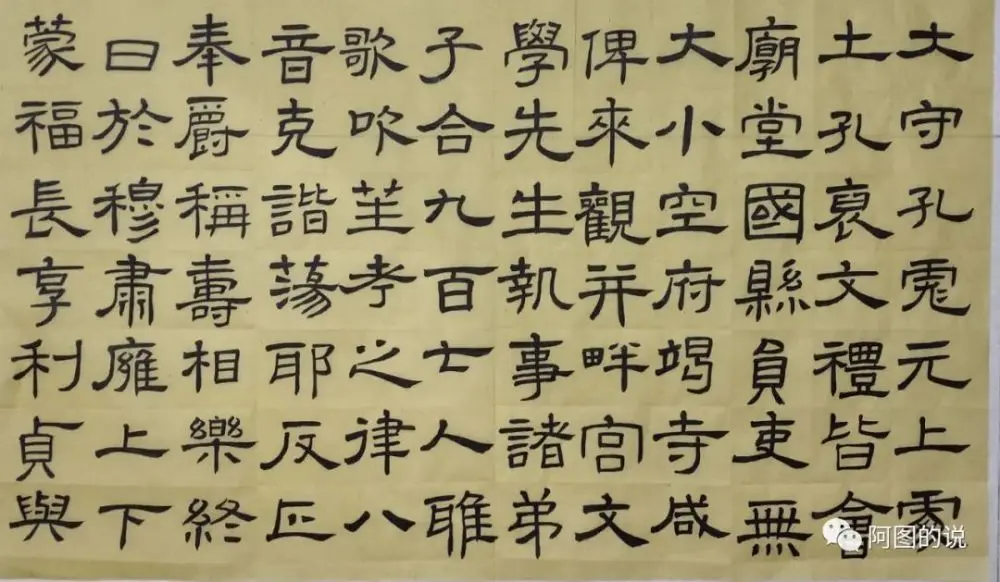 大守孔彪元上處
土孔褒文禮皆會
廟堂國縣員吏無
大小空府竭寺咸
俾來觀并畔宮文
學先生執事諸弟
子合九百七人雅
歌吹笙考之律八
音克諧蕩耶反正
奉爵稱壽相樂終
日於穆肅廱上下
蒙福長享利貞與
阿图的说